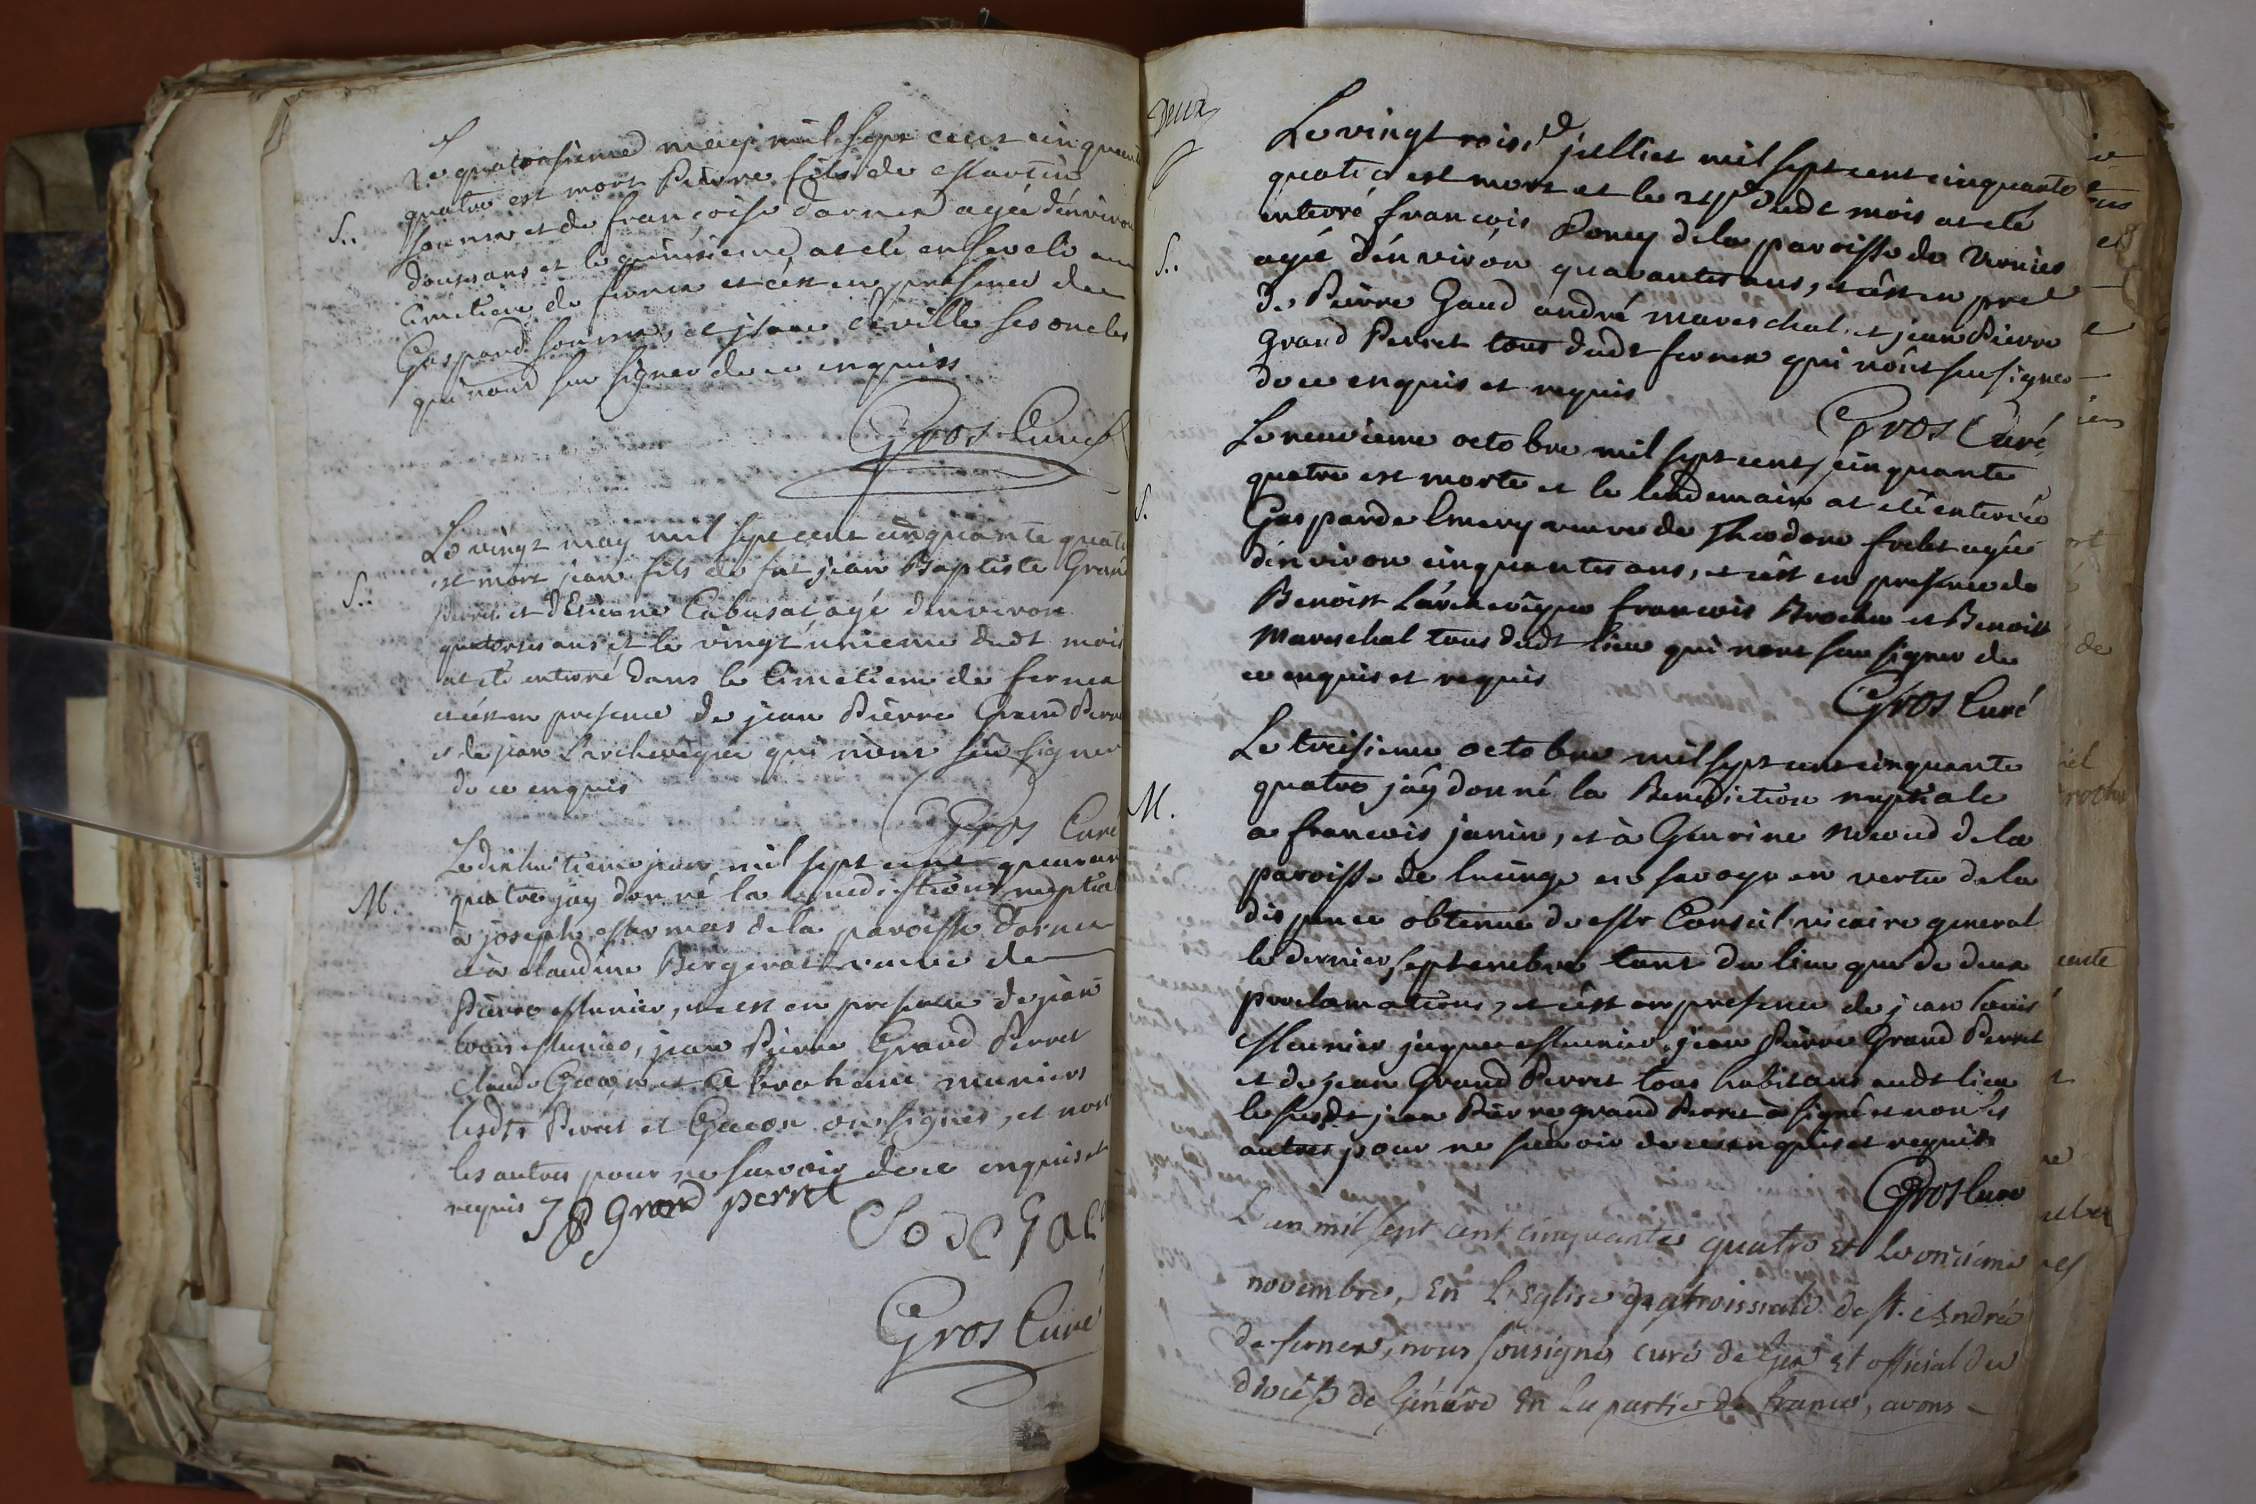 Le quatorsieme may mil sept cent cinquante
quatre est mort Pierre fils de Martin
fournier et de françoise dornex agé d'environ
douse ans et le quinsieme at eté enseveli au
Cimetiere de fernex et c'est en presence de
Gaspard fournier et jsaac deville ses oncles
qui n'ont seu signer de ce enquis
S..
Gros Curé
Le vingt may mil sept cent cinquante quatre
est mort jean fils de fut jean Baptiste Grand
Perret et d'Etienne Cabusat, agé d'environ
S..
quatorses ans et le vingt unieme dudt mois
at eté enterré dans le Cimetiere de fernex
et c'est en presence de jean Pierre Grand Perret
et de jean Larchevêque qui n'ont seu signer
de ce enquis
Gros Curé
Le dix huitieme juin mil sept cent
quatre jay donné la benediction nuptiale
M.
à joseph Mermet de la paroisse dornex
et à claudine Bergerat veuve de
Pierre Munier, et c'est en presence de jean
louis Munier, jean Pierre Grand Perret
Claude Gacon et Abraham muniers
lesdts Perret et Gacon ont signés, et non
les autres pour ne scavoir de ce enquis et
requis J P Grand perret
Gros Curé
Deux
Le vingt trois.e juilliet mil sept cent cinquante
quatre est mort et le 24e dudt mois at eté
enterré françois Poncy de la paroisse de Vernier
S..
agé d'environ quarantes ans, et c'est en prec.e
de Pierre Gaud andré mareschal et jean Pierre
Grand Perret tous dudt fernex qui n'ont seu signer
de ce enquis et requis
Gros Curé
Le neuvieme octobre mil sept cent cinquante
quatre est morte et le lendemain at eté enterrée
S.
Gasparde Emery veuve de Theodore frelet agée
d'environ cinquantes ans, et c'est en presence de
Benoist Larchevêque françois Brochu et Benoist
Mareschal tous dudt lieu qui n'ont seu signer de
ce enquis et requis
Gros Curé
Le treisieme octobre mil sept cent cinquante
quatre j'aÿ donné la Benediction nuptiale
M.
a françois janin, et à Geurine Novoud de la
paroisse de lucinge en savoye en vertu de la
dispence obtenue de Mr Conseil vicaire general
le dernier septembre tant du lieu que de deux
proclamations, et c'est en presence de jean louis
Meunier jaques Meunier, jean Pierre Grand Perret
et de jean Grand Perret tous habitans audt lieu
le susdt jean Pierre grand Perret à signé et non les
autres pour ne scavoir de ce enquis et requis
Gros Curé
L'an mil sept cent cinquante quatre et le onzieme
novembre, En L'Eglise paroissiale de st. André
de fernex, nous sousigné curé de Gex et official du
diocese de Géneve En La partie de france, avons